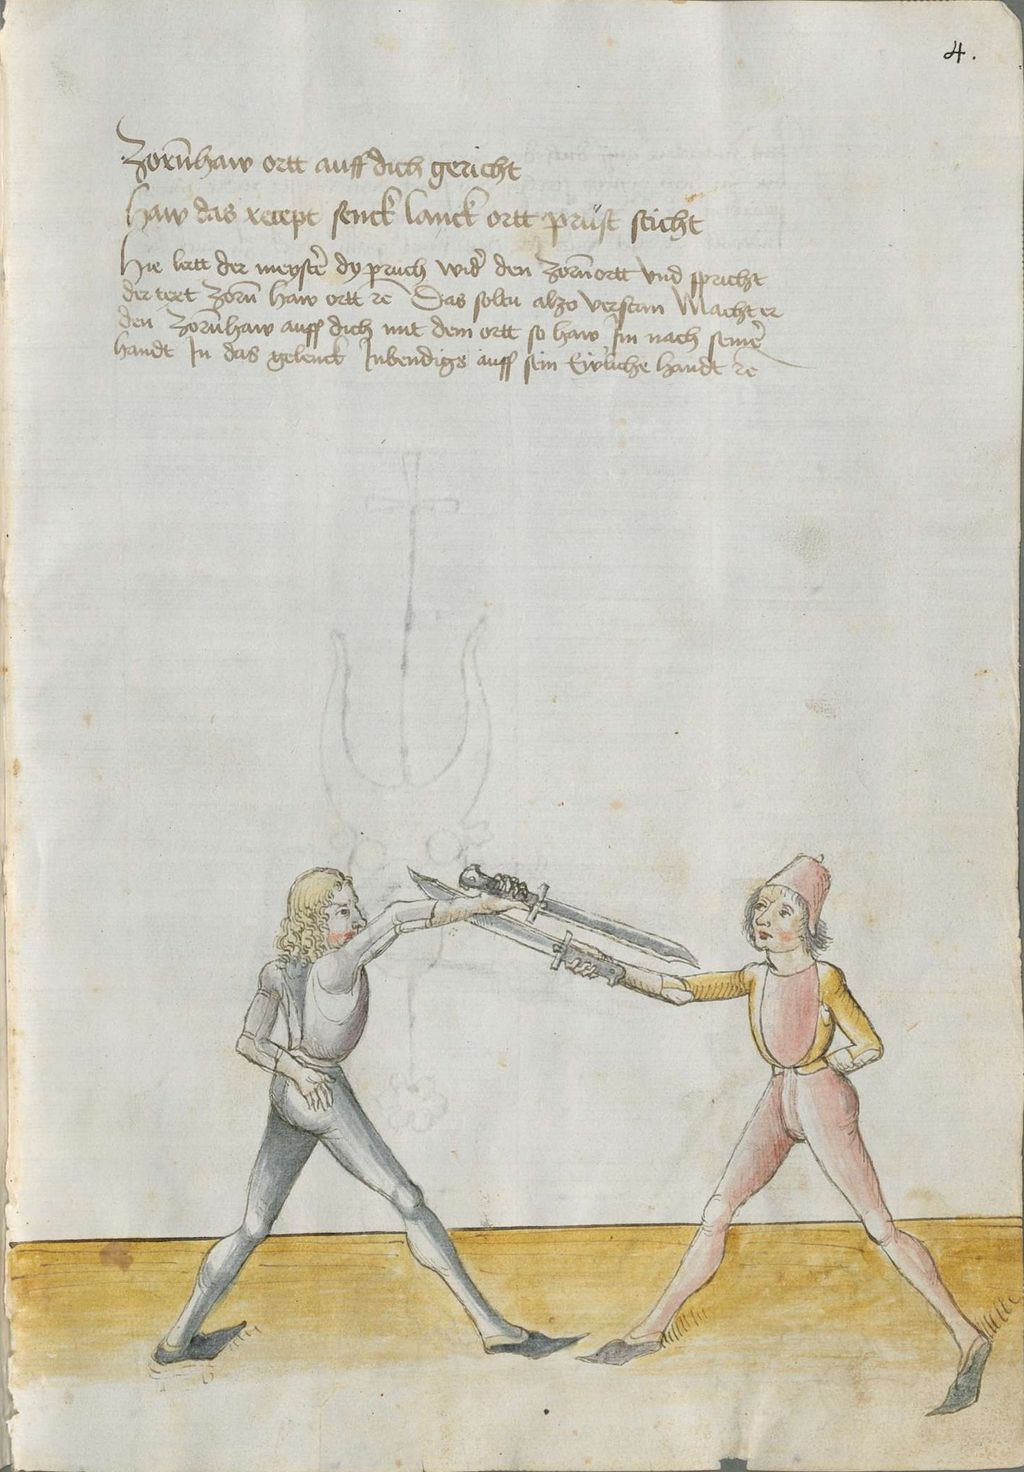 4.
Zornhaw ortt auff dich gericht
Haw das recept senck lanck ortt prüst sticht
Hie lertt der meyster dy pruch wider den Zornortt vnd spricht
der text Zorn haw ortt re Das soltu alzo verstan Macht er
den Zornhaw auff dich mit dem ortt so haw Im nach seiner
handt In das gelenck Inbendigs auff sein handt re